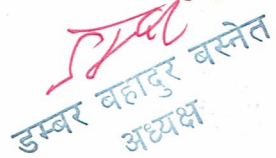 डम्बर बहादुर बस्नेत
अध्यक्ष